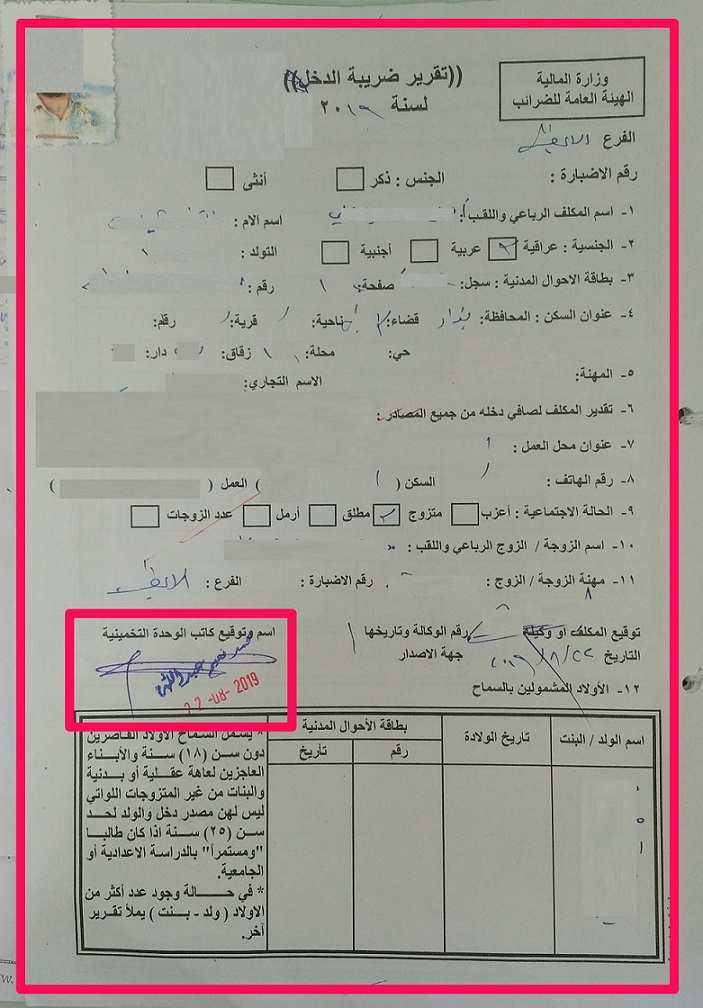 وزارة المالية
الهيئة العامة للضرائب
((تقرير ضريبة الدخل))
لسنة ٢٠١٩
الفرع
رقم الاضبارة :
الجنس : ذكر أنثى
١- اسم المكلف الرباعي واللقب: اسم الام :
٢- الجنسية : عراقية عربية أجنبية التولد :
٣- بطاقة الاحوال المدنية : سجل: صفحة: رقم :
٤- عنوان السكن : المحافظة: بغداد قضاء: ناحية: قرية: رقم:
حي: محلة: زقاق: دار:
٥- المهنة: الاسم التجاري:
٦- تقدير المكلف لصافي دخله من جميع المصادر :
٧- عنوان محل العمل :
٨- رقم الهاتف : السكن ( ) العمل ( )
٩- الحالة الاجتماعية : أعزب متزوج مطلق أرمل عدد الزوجات
١٠- اسم الزوجة / الزوج الرباعي واللقب :
١١- مهنة الزوجة / الزوج : رقم الاضبارة : الفرع :
توقيع المكلف او وكيله رقم الوكالة وتاريخها اسم وتوقيع كاتب الوحدة التخمينية
التاريخ ٢٢/٨/٢٠١٩ جهة الاصدار
22-08-2019
١٢- الأولاد المشمولين بالسماح
اسم الولد / البنت تاريخ الولادة بطاقة الأحوال المدنية
رقم تأريخ
* يشمل السماح الاولاد القاصرين
دون سن (١٨) سنة والأبناء
العاجزين لعاهة عقلية أو بدنية
والبنات من غير المتزوجات اللواتي
ليس لهن مصدر دخل والولد لحد
سن (٢٥) سنة اذا كان طالبا
"ومستمراً" بالدراسة الاعدادية أو
الجامعية.
* في حـــالة وجود عدد أكثر من
الاولاد ( ولد - بنت ) يملأ تقرير
آخر.